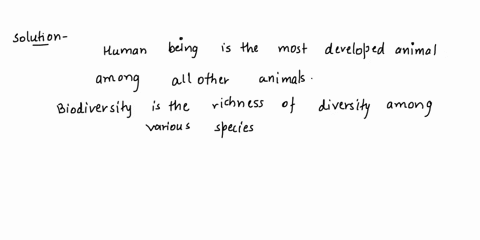 Solution-
Human being is the most developed animal
among all other animals.
Biodiversity is the richness of diversity among
various species